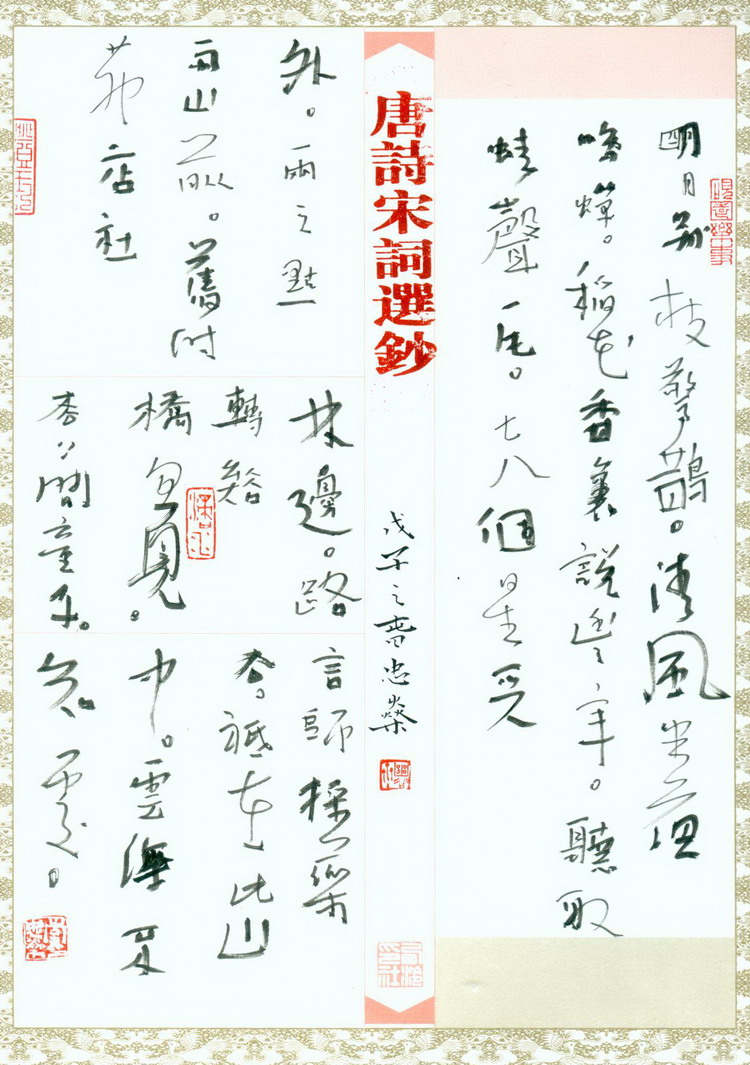 明月別枝驚鵲。清風半夜
鳴蟬。稻花香裏說豐年。聽取
蛙聲一片。七八個星天
唐詩宋詞選鈔
戊子之春忠燊
外。兩三點
雨山前。舊時
茆店社
林邊。路
轉谿
橋忽見。
松下問童子。
言師採藥
去。祇在此山
中。雲深不
知處。